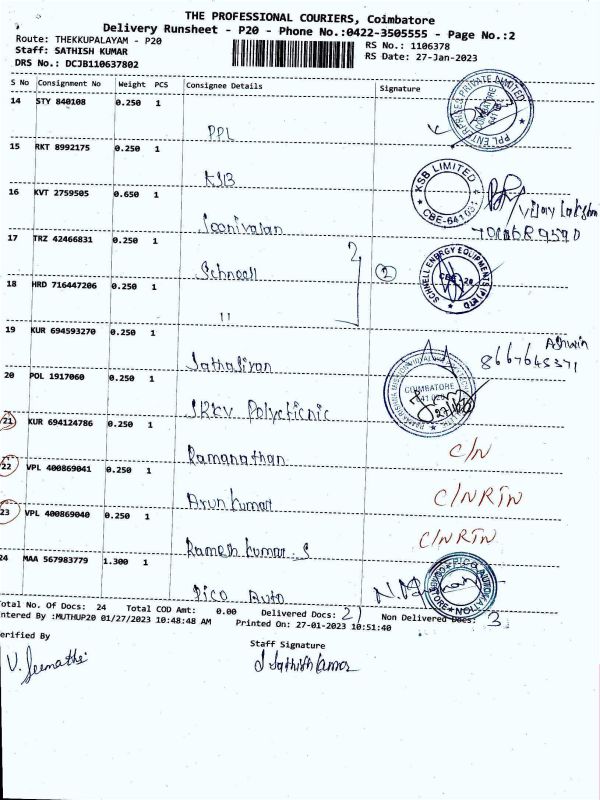 THE PROFESSIONAL COURIERS, Coimbatore
Delivery Runsheet - P20 - Phone No.:0422-3505555 - Page No.:2
Route: THEKKUPALAYAM - P20
RS No.: 1106378
Staff: SATHISH KUMAR
RS Date: 27-Jan-2023
DRS No.: DCJB110637802
S No Consignment No Weight PCS Consignee Details Signature
14 STY 840108 0.250 1
PPL
PPL ENTERPRISES PRIVATE LIMITED
COIMBATORE
15 RKT 8992175 0.250 1
KSB
KSB LIMITED
CBE-641 031
16 KVT 2759505 0.650 1
Vijay Lakshmi
Seenivasan
17 TRZ 42466831 0.250 1
Schnell
2
SCHNELL ENERGY EQUIPMENTS (P) LTD
18 HRD 716447206 0.250 1
"
19 KUR 694593270 0.250 1
Ashwin
8667645371
Sathasivan
20 POL 1917060 0.250 1
COIMBATORE
641 020
SRKV Polyctienic
21 KUR 694124786 0.250 1
Ramanathan C/N
22 VPL 400869041 0.250 1
Arun kumar C/NRTN
23 VPL 400869040 0.250 1
Ramesh kumar. S C/NRTN
24 MAA 567983779 1.300 1
Pico Auto
Total No. Of Docs: 24 Total COD Amt: 0.00 Delivered Docs: 21 Non Delivered Docs: 3
Entered By :MUTHUP20 01/27/2023 10:48:48 AM Printed On: 27-01-2023 10:51:40
Verified By
Staff Signature
V. Jeemathi
S Sathish kumar